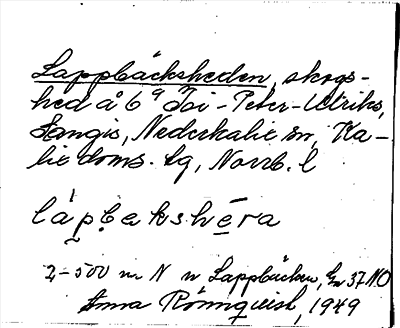 Lappbäcksheden, skogs-
hed å 6⁹ Joi-Peter-Ulriks,
Sangis, Nederkalix sn, Ka-
lix doms. tg, Norrb. l
lápbakshēra
2-500 m N n Lappbäcken, 37 NO
Anna Rönnquist, 1949